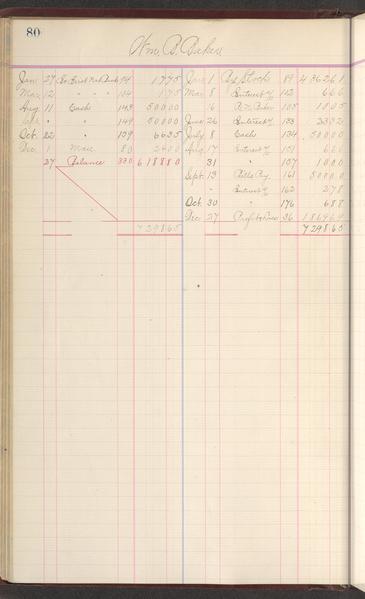 80
Wm. B. Baker
Jan 27 To First Nat Bank 94 1775
Mar 12 " " " " 104 175
Aug 11 Cash 143 50000
" " 149 50000
Oct. 22 " 179 6635
Dec. 1 Mdse 80 2400
27 Balance 330 618880
729865
Jan 1 By Stock 89 436261
Mar 8 Interest % 112 666
" 6 105 1005
June 26 Interest % 133 3332
July 8 Cash 134 50000
Aug 17 Interest % 151 666
31 " 157 1000
Sept. 13 Bills Pay. 161 50000
" Interest % 162 278
Oct. 30 " 176 688
Dec 27 Profit & Loss 36 186969
729865